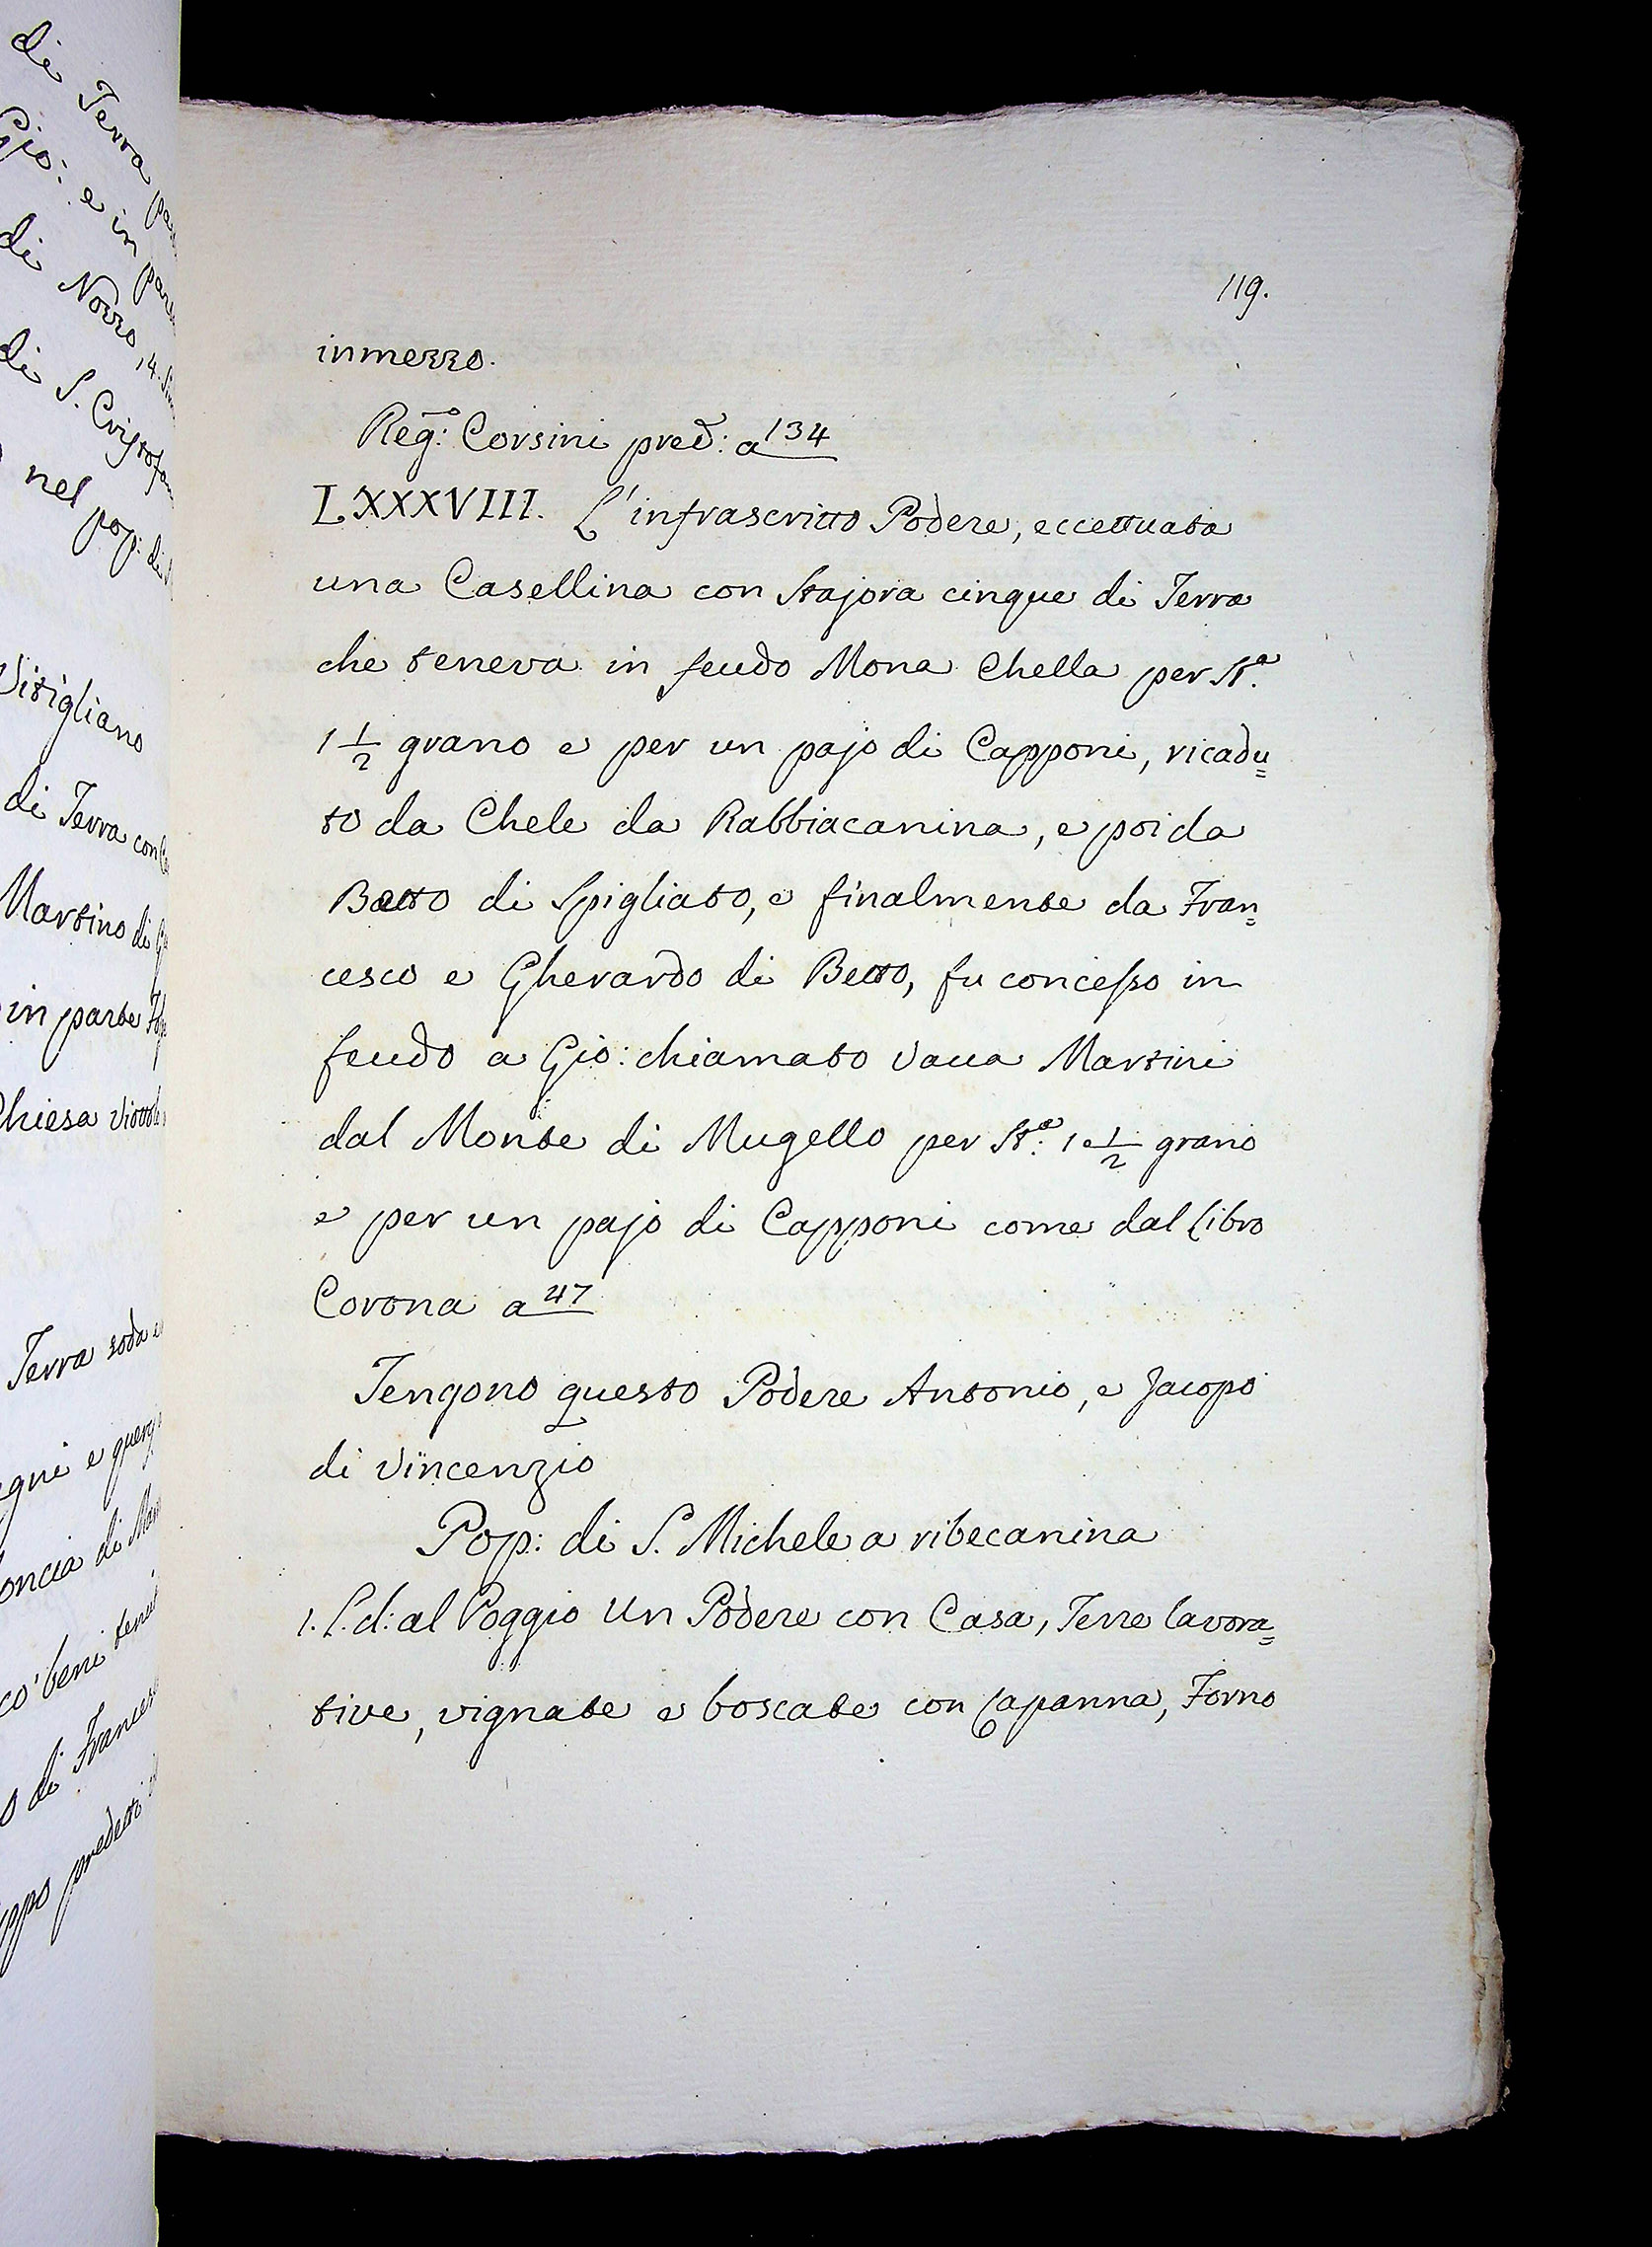 di Terra
Gio: e in
di Nozzo 14.
di S. Cristofa
nel pop: di
Visigliano
di Terra con
Martino di
in parte
Chiesa
Terra soda e
e
di
co' beni
di Frances
predetto
119.
inmezzo.
Reg:º Corsini pred: a 134
LXXXVIII. L'infrascritto Podere, eccettuata
una Casellina con stajora cinque di Terra
che teneva in feudo Mona Chella per St.ª
1 1/2 grano e per un pajo di Capponi, ricadu=
to da Chele da Rabbiacanina, e poi da
Betto di Spigliato, e finalmente da Fran=
cesco e Gherardo di Betto, fu concesso in
feudo a Gio: chiamato Vacca Martini
dal Monte di Mugello per St:ª 1 e 1/2 grano
e per un pajo di Capponi come dal libro
Corona a 47
Tengono questo Podere Antonio, e Jacopo
di Vincenzio
Pop: di S. Michele a ribecanina
1. l.d: al Poggio Un Podere con Casa, Terre lavora=
tive, vignate e boscate con Capanna, Forno